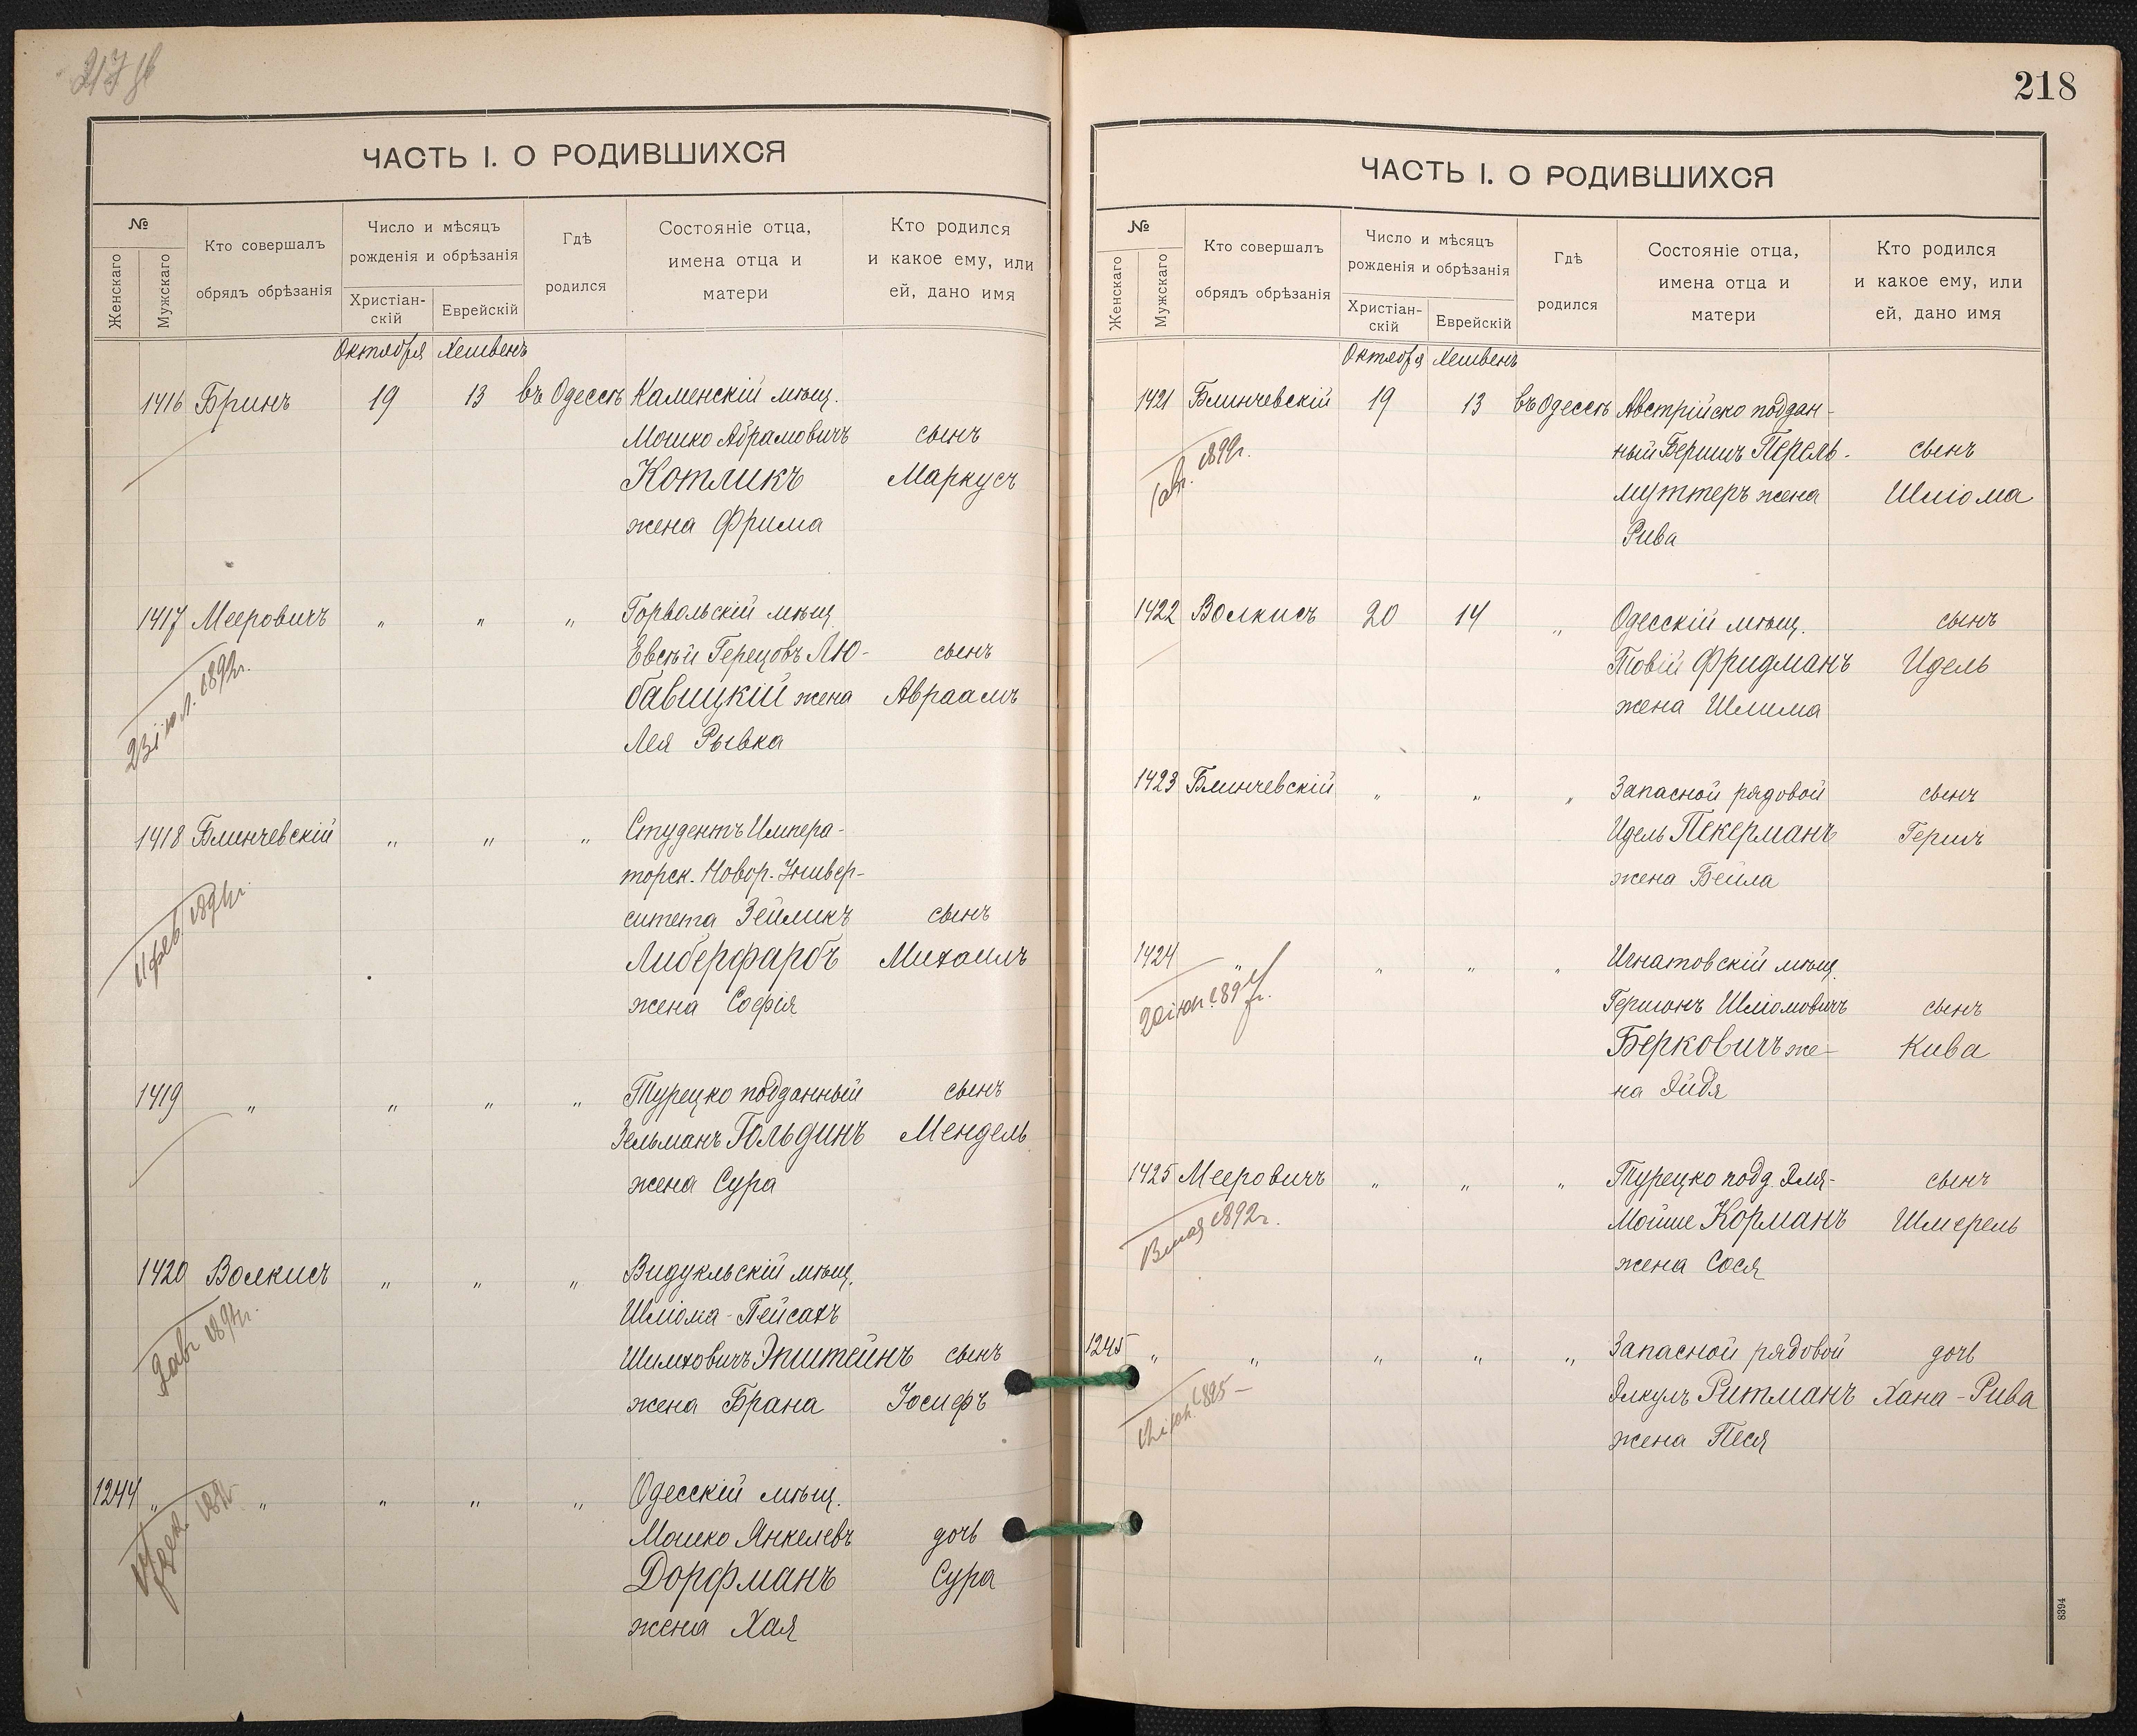 ЧАСТЬ I. О РОДИВШИХСЯ
№
Женскаго
Мужскаго
Кто совершалъ
обрядъ обрѣзанія
Число и мѣсяцъ
рожденія и обрѣзанія
Христіан-
скій
Еврейскій
Гдѣ
родился
Состояніе отца,
имена отца и
матери
Кто родился
и какое ему, или
ей, дано имя
Октября Хешвенъ
1416 Бринъ 19 13 въ Одессѣ Каменскій мѣщ.
Мошко Абрамовичъ сынъ
Котликъ Маркусъ
жена Фрима
1417 Мееровичъ " " " Горвольскій мѣщ.
Евсѣй Герецовъ Лю- сынъ
бавицкій жена Авраамъ
Лея Рывка
23 іюл. 1892г.
1418 Блинчевскій " " " Студентъ Импера-
торск. Новор. Универ-
ситета Зейликъ сынъ
Либерфарбъ Михаилъ
жена Софія
11 фев. 1894г.
1419 " " " " Турецко подданный сынъ
Зельманъ Гольдинъ Мендель
жена Сура
1420 Волкисъ " " " Видукльскій мѣщ.
Шліома-Пейсахъ
Шимховичъ Эпштейнъ сынъ
жена Брана Іосифъ
1244 " " " " " Одесскій мѣщ.
Мошко Янкелевъ дочь
Дорфманъ Сура
жена Хая
218
ЧАСТЬ I. О РОДИВШИХСЯ
№
Женскаго
Мужскаго
Кто совершалъ
обрядъ обрѣзанія
Число и мѣсяцъ
рожденія и обрѣзанія
Христіан-
скій
Еврейскій
Гдѣ
родился
Состояніе отца,
имена отца и
матери
Кто родился
и какое ему, или
ей, дано имя
Октября Хешвенъ
1421 Блинчевскій 19 13 въ Одессѣ Австрійско поддан-
ный Бершъ Перель- сынъ
муттеръ жена Шліома
Рива
1899г.
1422 Волкисъ 20 14 " Одесскій мѣщ. сынъ
Товій Фридманъ Идель
жена Шлима
1423 Блинчевскій " " " Запасной рядовой сынъ
Идель Пекерманъ Гершъ
жена Бейла
1424 " " " " Игнатовскій мѣщ.
Гершонъ Шліомовичъ сынъ
Берковичъ же- Кива
на Эйдя
1425 Мееровичъ " " " Турецко подд. Эля- сынъ
Мойше Корманъ Шмерель
жена Сося
мая 1892г.
1245 " " " " " Запасной рядовой дочь
Элкулъ Ритманъ Хана-Рива
жена Песя
8394